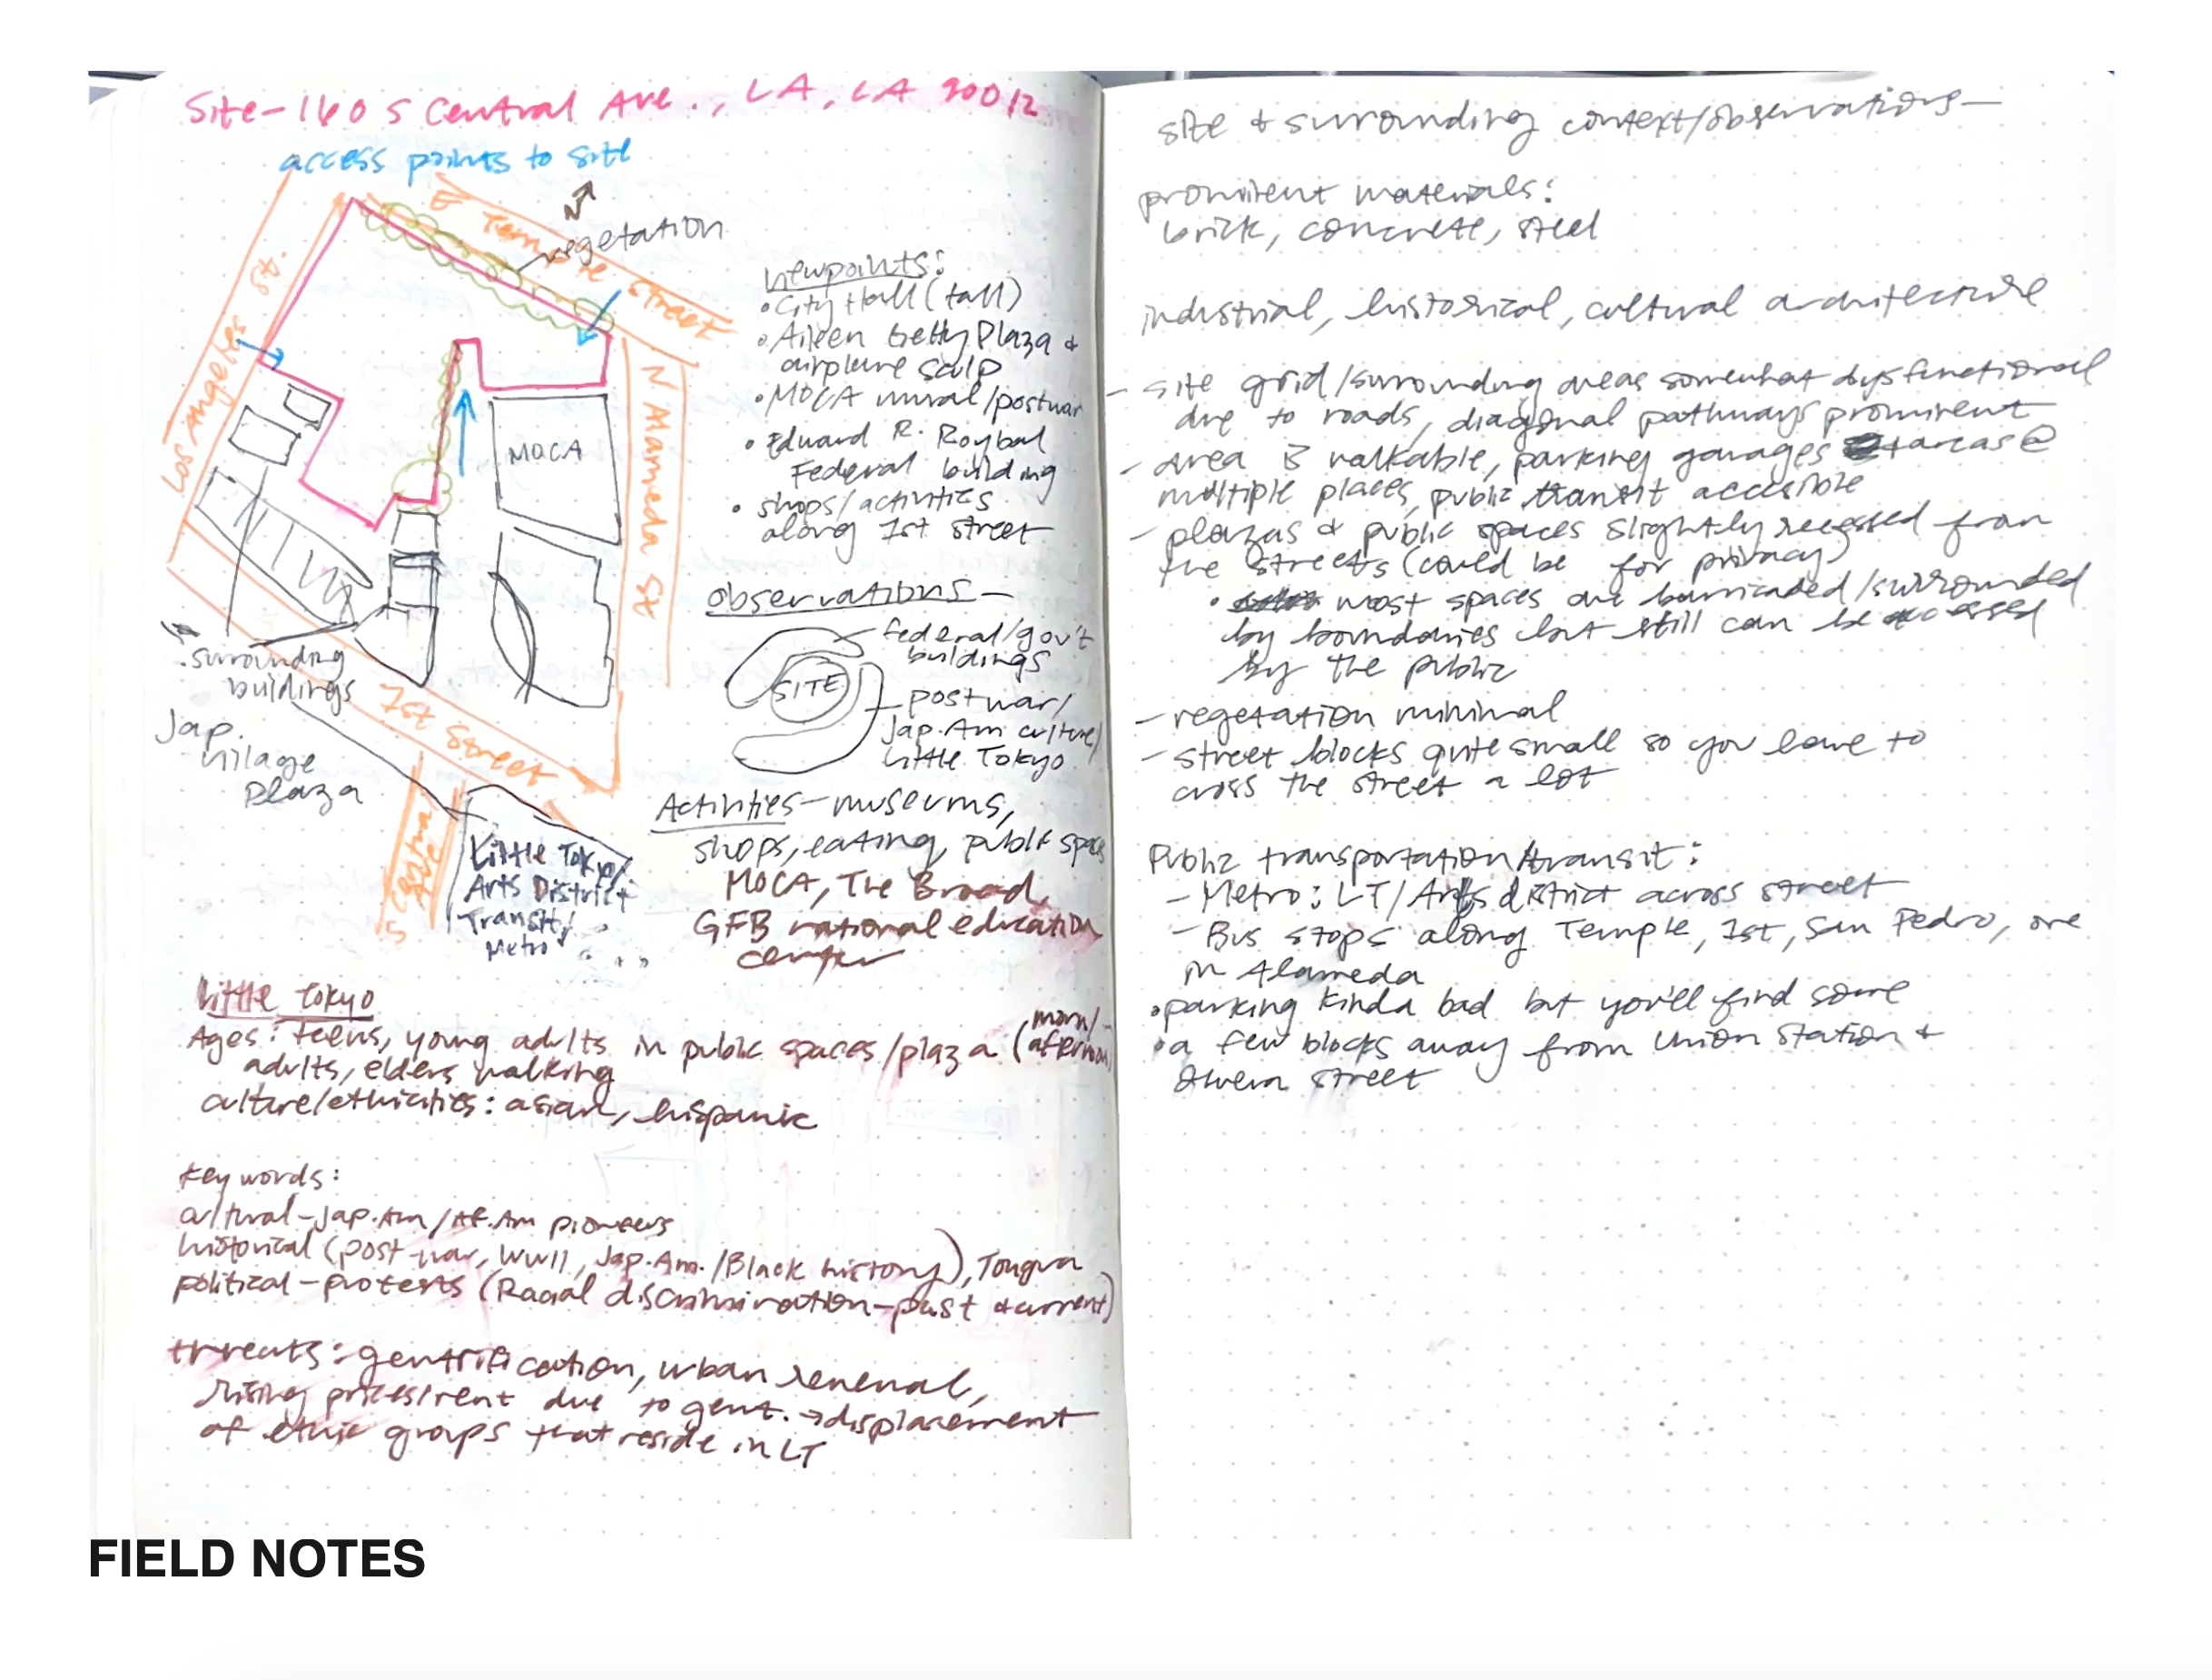 Site - 160 S Central Ave., LA, CA 90012
access points to site
N
vegetation
E Temple Street
Los Angeles St.
N Alameda St
MOCA
surrounding
buildings
1st Street
Jap.
Village
Plaza
S Central
Ave
Little Tokyo/
Arts District
Transit/
Metro
Viewpoints:
• City Hall (tall)
• Aileen Getty Plaza &
airplane sculp
• MOCA mural/postwar
• Eduard R. Roybal
Federal building
• shops/activities
along 1st street
Observations —
federal/gov't
buildings
SITE
postwar/
Jap. Am culture/
Little Tokyo
Activities — museums,
shops, eating, public space
MOCA, The Broad,
GFB national education
center
Little Tokyo
Ages: teens, young adults in public spaces/plaza (morn/
afternoon)
adults, elders walking
culture/ethicities: asian, hispanic
Key words:
cultural - Jap. Am/Af. Am pioneers
historical (post-war, WWII, Jap. Am./Black history), Tongva
political - protests (Racial discrimination - past & current)
threats: gentrification, urban renewal,
rising prices/rent due to gent. → displacement
of ethic groups that reside in LT
site & surrounding context/observations —
prominent materials:
brick, concrete, steel
industrial, historical, cultural architecture
- site grid/surrounding areas somewhat dysfunctional
due to roads, diagonal pathways prominent
- area is walkable, parking garages + areas @
multiple places, public transit accesible
- plazas & public spaces slightly recessed from
the streets (could be for privacy)
• most spaces are barricaded/surrounded
by boundaries but still can be accessed
by the public
- vegetation minimal
- street blocks quite small so you have to
cross the street a lot
Public transportation/transit:
- Metro: LT/Arts district across street
- Bus stops along Temple, 1st, San Pedro, one
in Alameda
• parking kinda bad but you'll find some
• a few blocks away from Union Station &
Olvera street
FIELD NOTES